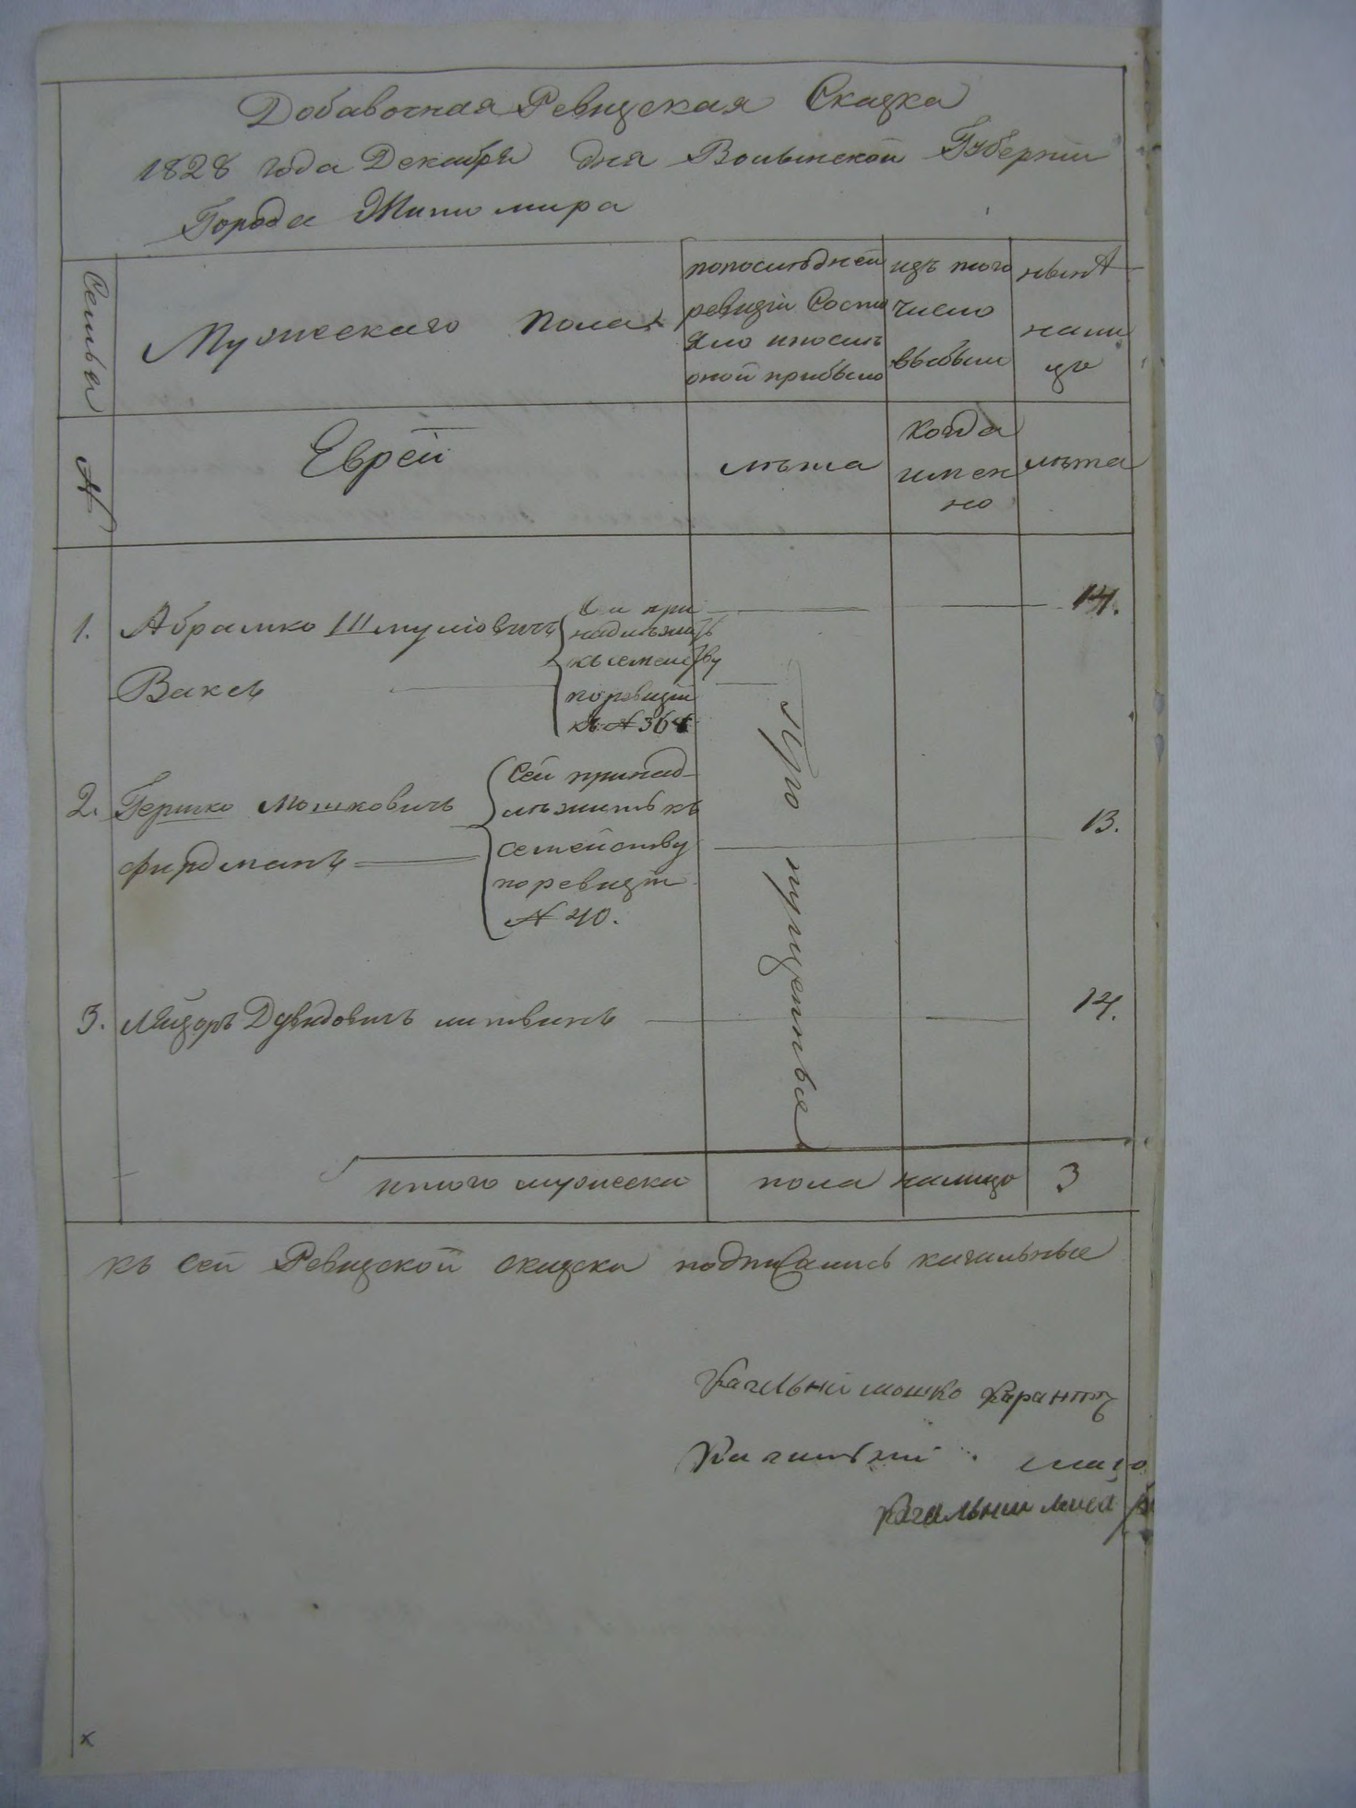 Добавочная Ревизская Сказка
1828 года Декабря дня Волынской Губернии
Города Житомира
Семьи
Мужескаго Пола
попоследней
ревизіи Состо
яло ипосле
оной прибыло
изъ того
число
выбыли
нынѣ
нали
це
№
Еврей
лѣта
когда
имен
но
лѣта
1. Абрамко Шмулювичъ
Ваксъ
при
надлежитъ
къ семейству
поревизіи
№ 364
14.
2. Гершко Мошковичъ
фирдманъ
Сей принад
лежитъ къ
семейству
поревизіи
№ 40.
13.
3. Лейзоръ Дувидовичъ литвинъ
14.
Пропущенные
итого мужеска пола налицо 3
къ сей Ревизской сказки подписались кагальные
Кагальни мошко
Кагальній
Кагальни
х